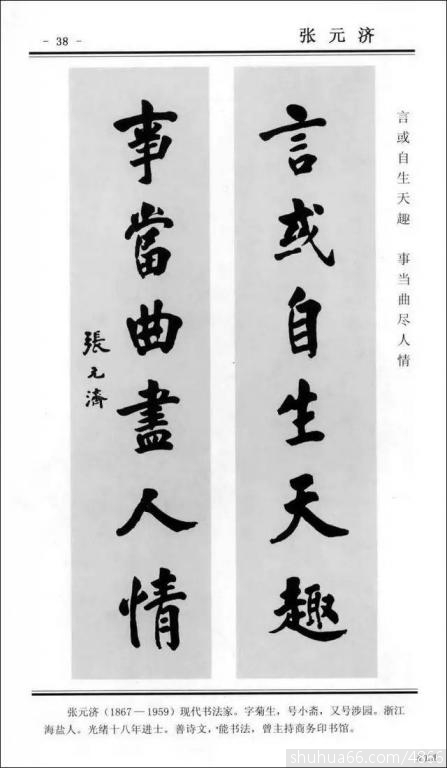 - 38 -
张元济
言或自生天趣 事当曲尽人情
言或自生天趣
事當曲盡人情
張元濟
张元济(1867—1959)现代书法家。字菊生,号小斋,又号涉园。浙江
海盐人。光绪十八年进士。善诗文,能书法,曾主持商务印书馆。